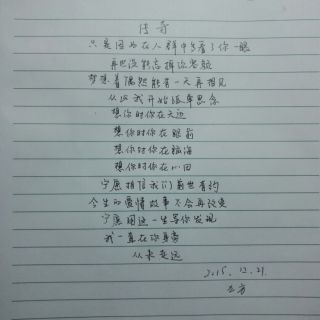 传奇
只是因为在人群中多看了你一眼
再也没能忘掉你容颜
梦想着偶然能有一天再相见
从此我开始孤单思念
想你时你在天边
想你时你在眼前
想你时你在脑海
想你时你在心田
宁愿相信我们前世有约
今生的爱情故事不会再改变
宁愿用这一生等你发现
我一直在你身旁
从未走远
2015.12.21.